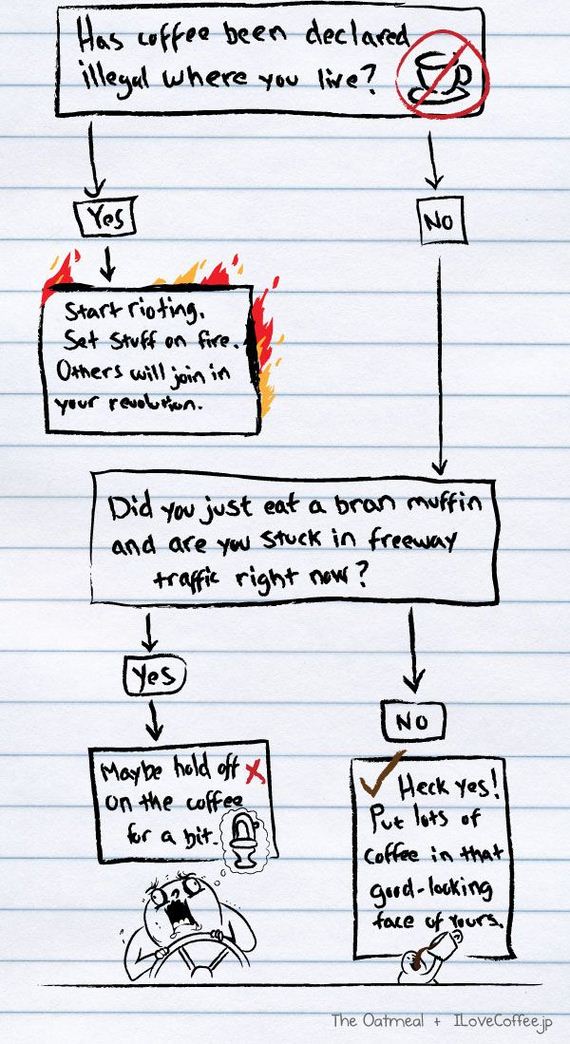 Has coffee been declared
illegal where you live?
Yes
No
Start rioting.
Set stuff on fire.
Others will join in
your revolution.
Did you just eat a bran muffin
and are you stuck in freeway
traffic right now?
Yes
No
Maybe hold off
on the coffee
for a bit.
Heck yes!
Put lots of
coffee in that
good-looking
face of yours.
The Oatmeal + ILoveCoffee.jp